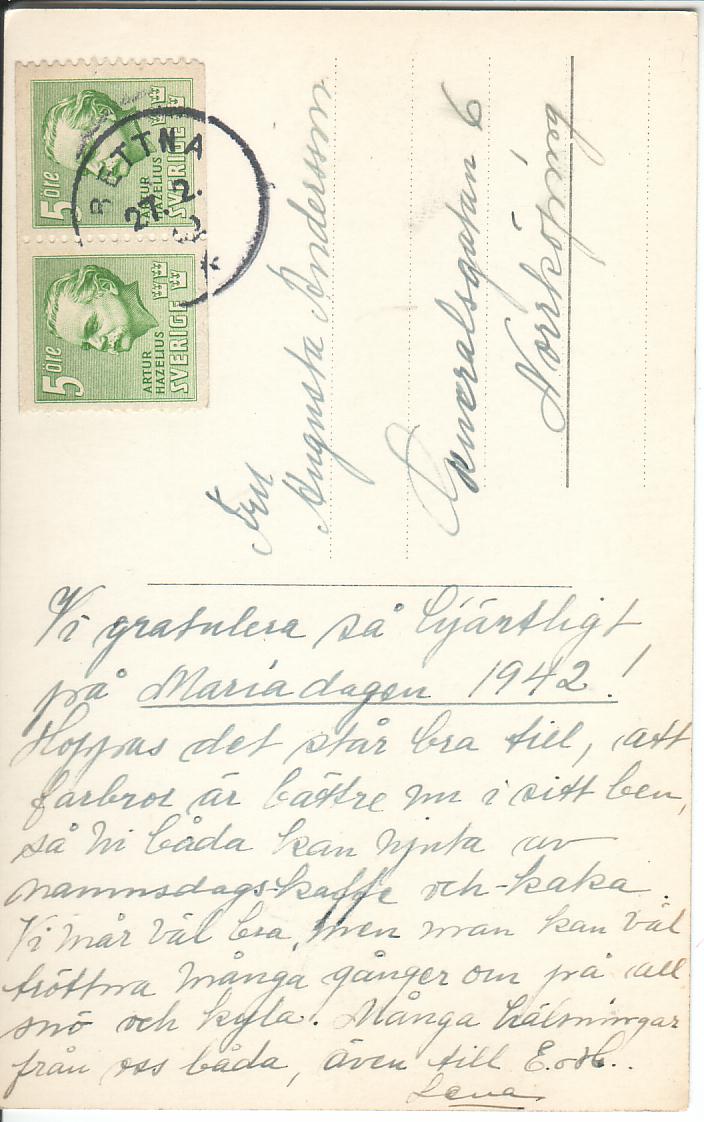 5 ÖRE
ARTUR
HAZELIUS
SVERIGE
5 ÖRE
ARTUR
HAZELIUS
SVERIGE
BETTNA
27.2.
Fru
Augusta Andersson
Generalsgatan 6
Norrköping
Vi gratulera så hjärtligt
på Mariadagen 1942!
Hoppas det står bra till, att
farbror är bättre nu i sitt ben,
så Ni båda kan njuta av
namnsdags-kaffe och -kaka.
Vi mår väl bra, men man kan väl
tröttna många gånger om på all
snö och kyla. Många hälsningar
från oss båda, även till E. o H..
Lena.